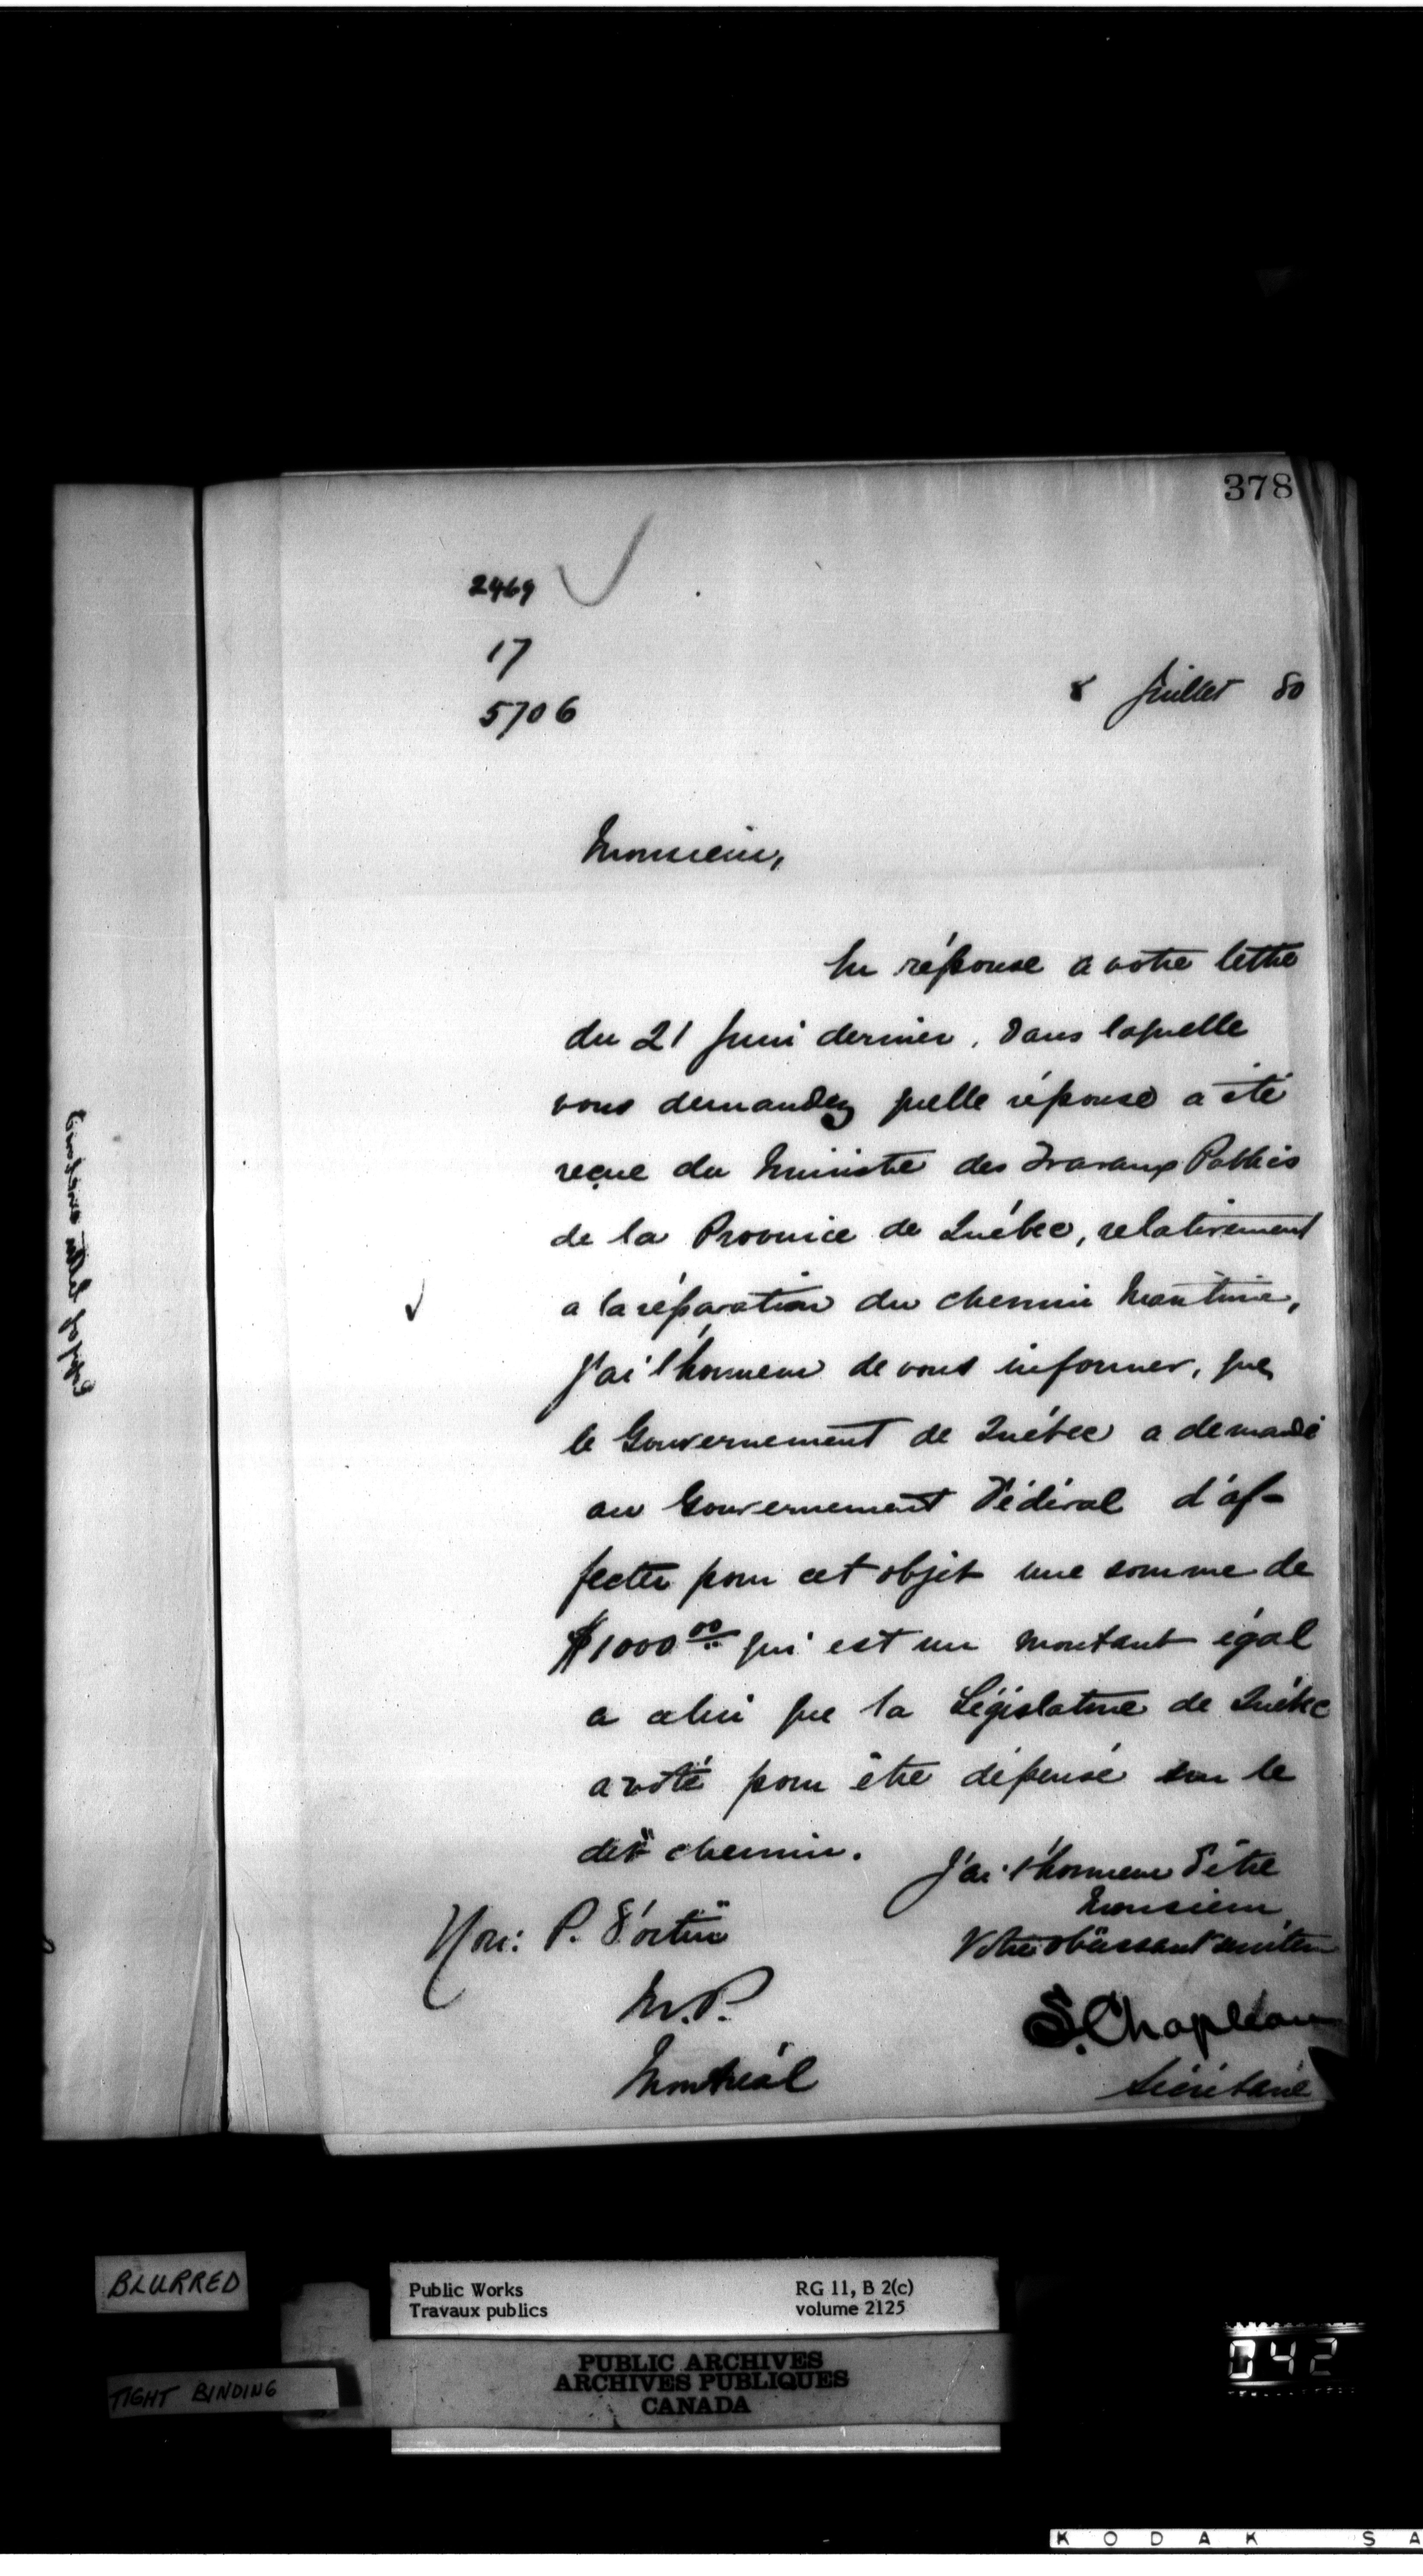 378
2469
17
5706
8 Juillet 80
Monsieur,
En réponse a votre lettre
du 21 Juin dernier, dans laquelle
vous demandez quelle réponse a été
reçue du Ministre des Travaux Publics
de la Province de Québec, relativement
a la réparation du chemin Maritime,
J'ai l'honneur de vous informer, que
le Gouvernement de Québec a demandé
au Gouvernement Fédéral d'af-
fecter pour cet objet une somme de
$1000.00 qui est un montant égal
a celui que la Législature de Québec
a voté pour être dépensé sur le
dit chemin.
J'ai l'honneur d'être
Monsieur
Votre obéissant serviteur
S. Chapleau
Secrétaire
Hon: P. Fortin
M.P.
Montréal
BLURRED
TIGHT BINDING
Public Works
Travaux publics
RG 11, B 2(c)
volume 2125
PUBLIC ARCHIVES
ARCHIVES PUBLIQUES
CANADA
042
KODAK SA